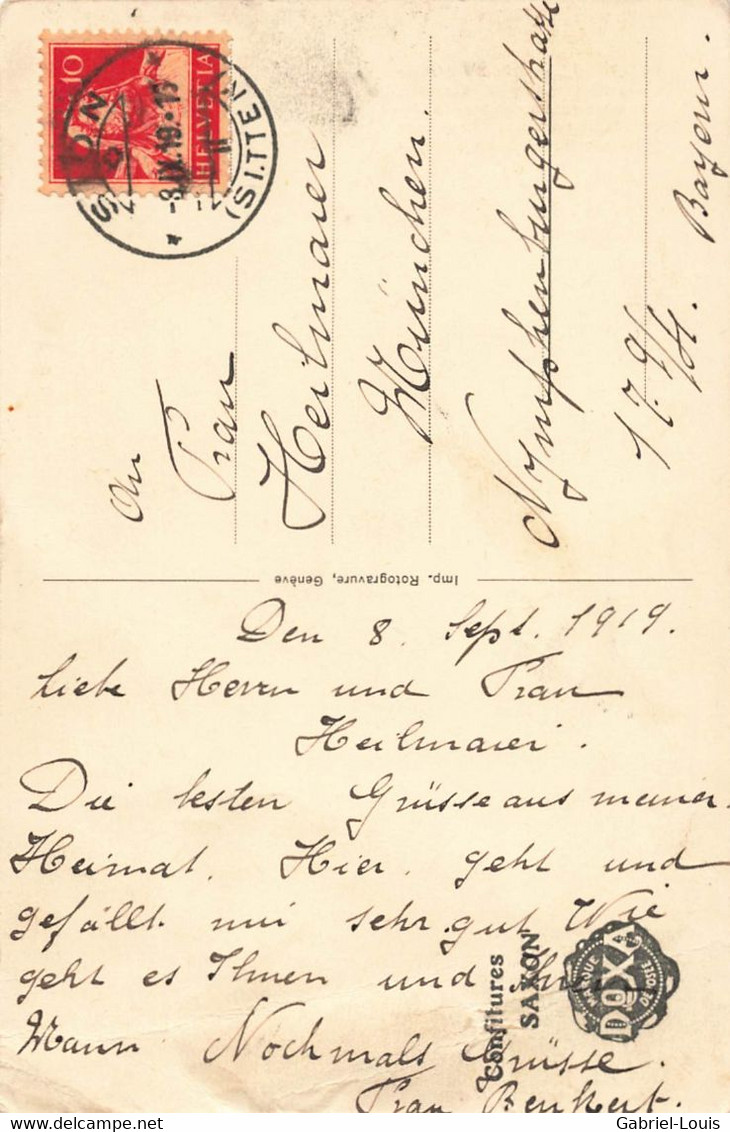 10
HELVETIA
SION
(SITTEN)
-8.IX.19.-17
An
Frau
Heilmaier
München.
Nymphenburgerstrasse
17. 9/4.
Bayern.
Imp. Rotogravure, Genève
Den 8. Sept. 1919.
Liebe Herrn und Frau
Heilmaier.
Die besten Grüsse aus meiner
Heimat. Hier geht und
gefällt mir sehr gut Wie
geht es Ihnen und Ihrem
Mann Nochmals Grüsse.
Frau
Confitures
SAXON
MARQUE
DOXA
DÉPOSÉE
www.delcampe.net
Gabriel-Louis